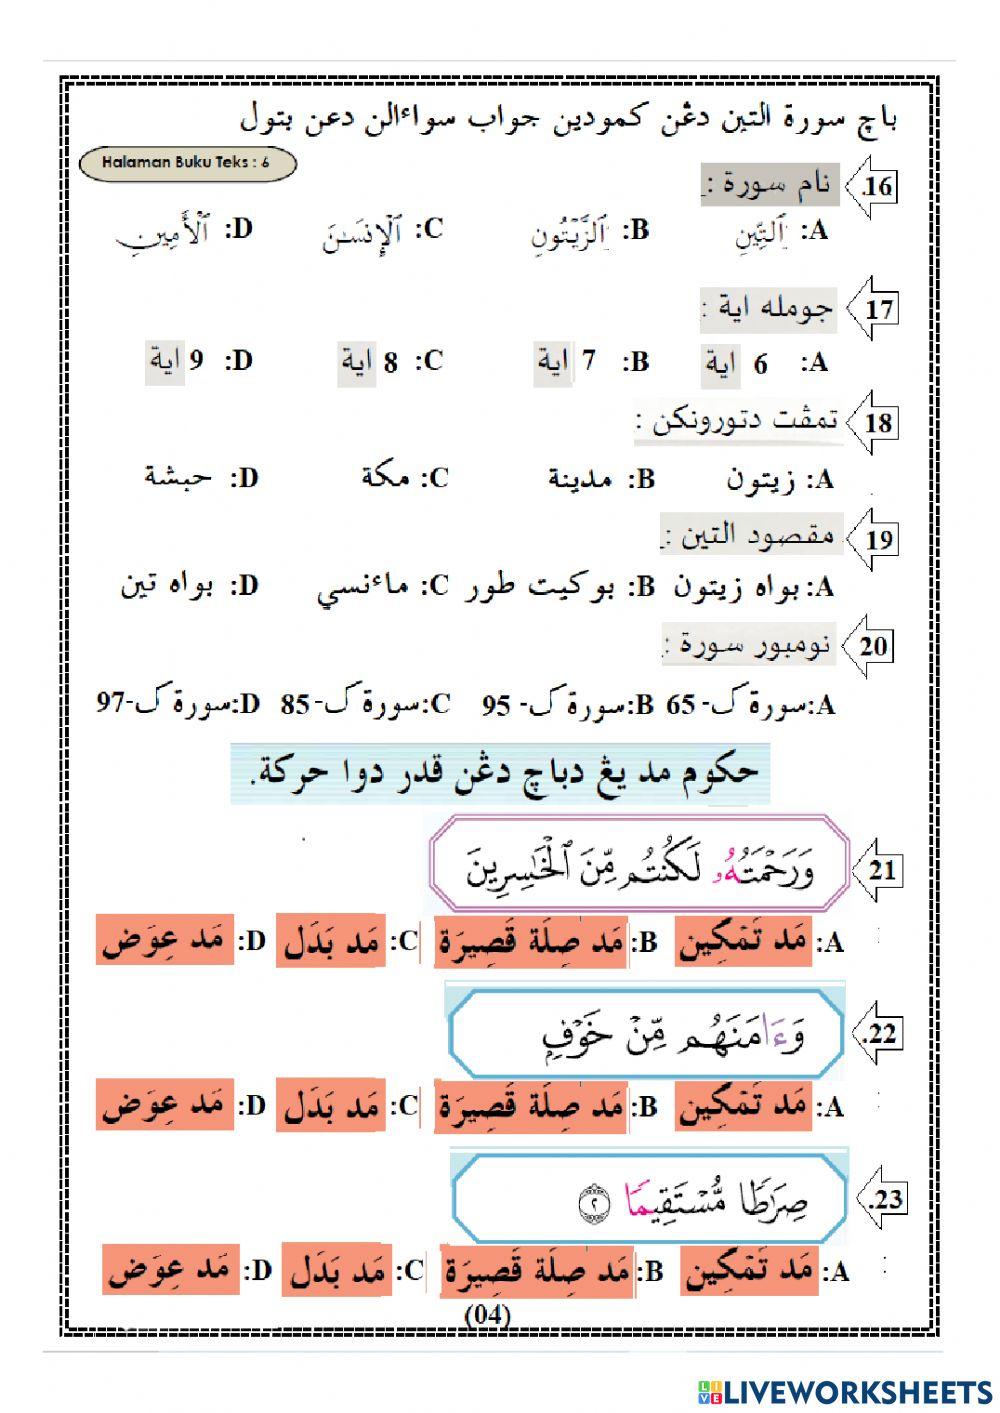 باچ سورة التين دڠن كمودين جواب سواءالن دعن بتول
Halaman Buku Teks : 6
16. نام سورة :
A: ٱلتِّينِ B: ٱلزَّيْتُونِ C: ٱلْإِنسَـٰنَ D: ٱلْأَمِينِ
17 جومله اية :
A: 6 اية B: 7 اية C: 8 اية D: 9 اية
18 تمڤت دتورونكن :
A: زيتون B: مدينة C: مكة D: حبشة
19 مقصود التين :
A: بواه زيتون B: بوكيت طور C: ماءنسي D: بواه تين
20 نومبور سورة :
A: سورة ک- 65 B: سورة ک- 95 C: سورة ک- 85 D: سورة ک-97
حكوم مد يڠ دباچ دڠن قدر دوا حركة.
21 وَرَحْمَتُهُۥ لَكُنتُم مِّنَ ٱلْخَـٰسِرِينَ
A: مَد تَمْكِين B: مَد صِلَة قَصِيرَة C: مَد بَدَل D: مَد عِوَض
22. وَءَامَنَهُم مِّنْ خَوْفٍ
A: مَد تَمْكِين B: مَد صِلَة قَصِيرَة C: مَد بَدَل D: مَد عِوَض
23. صِرَٰطًا مُّسْتَقِيمًا ٢
A: مَد تَمْكِين B: مَد صِلَة قَصِيرَة C: مَد بَدَل D: مَد عِوَض
(04)
LIVEWORKSHEETS